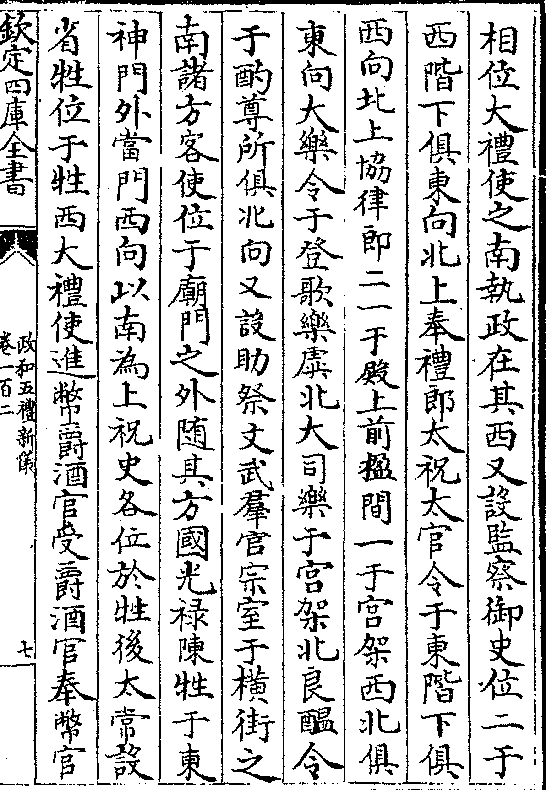 相位大禮使之南執政在其西又設監察御史位二于
西階下俱東向北上奉禮郎太祝太官令于東階下俱
西向北上協律郎二一于殿上前楹間一于宫架西北俱
東向大樂令于登歌樂虡北大司樂于宫架北良醖令
于酌尊所俱北向又設助祭文武羣官宗室于横街之
南諸方客使位于廟門之外随其方國光禄陳牲于東
神門外當門西向以南為上祝史各位於牲後太常設
省牲位于牲西大禮使進幣爵酒官受爵酒官奉幣官
欽定四庫全書
政和五禮新儀
卷一百二
七